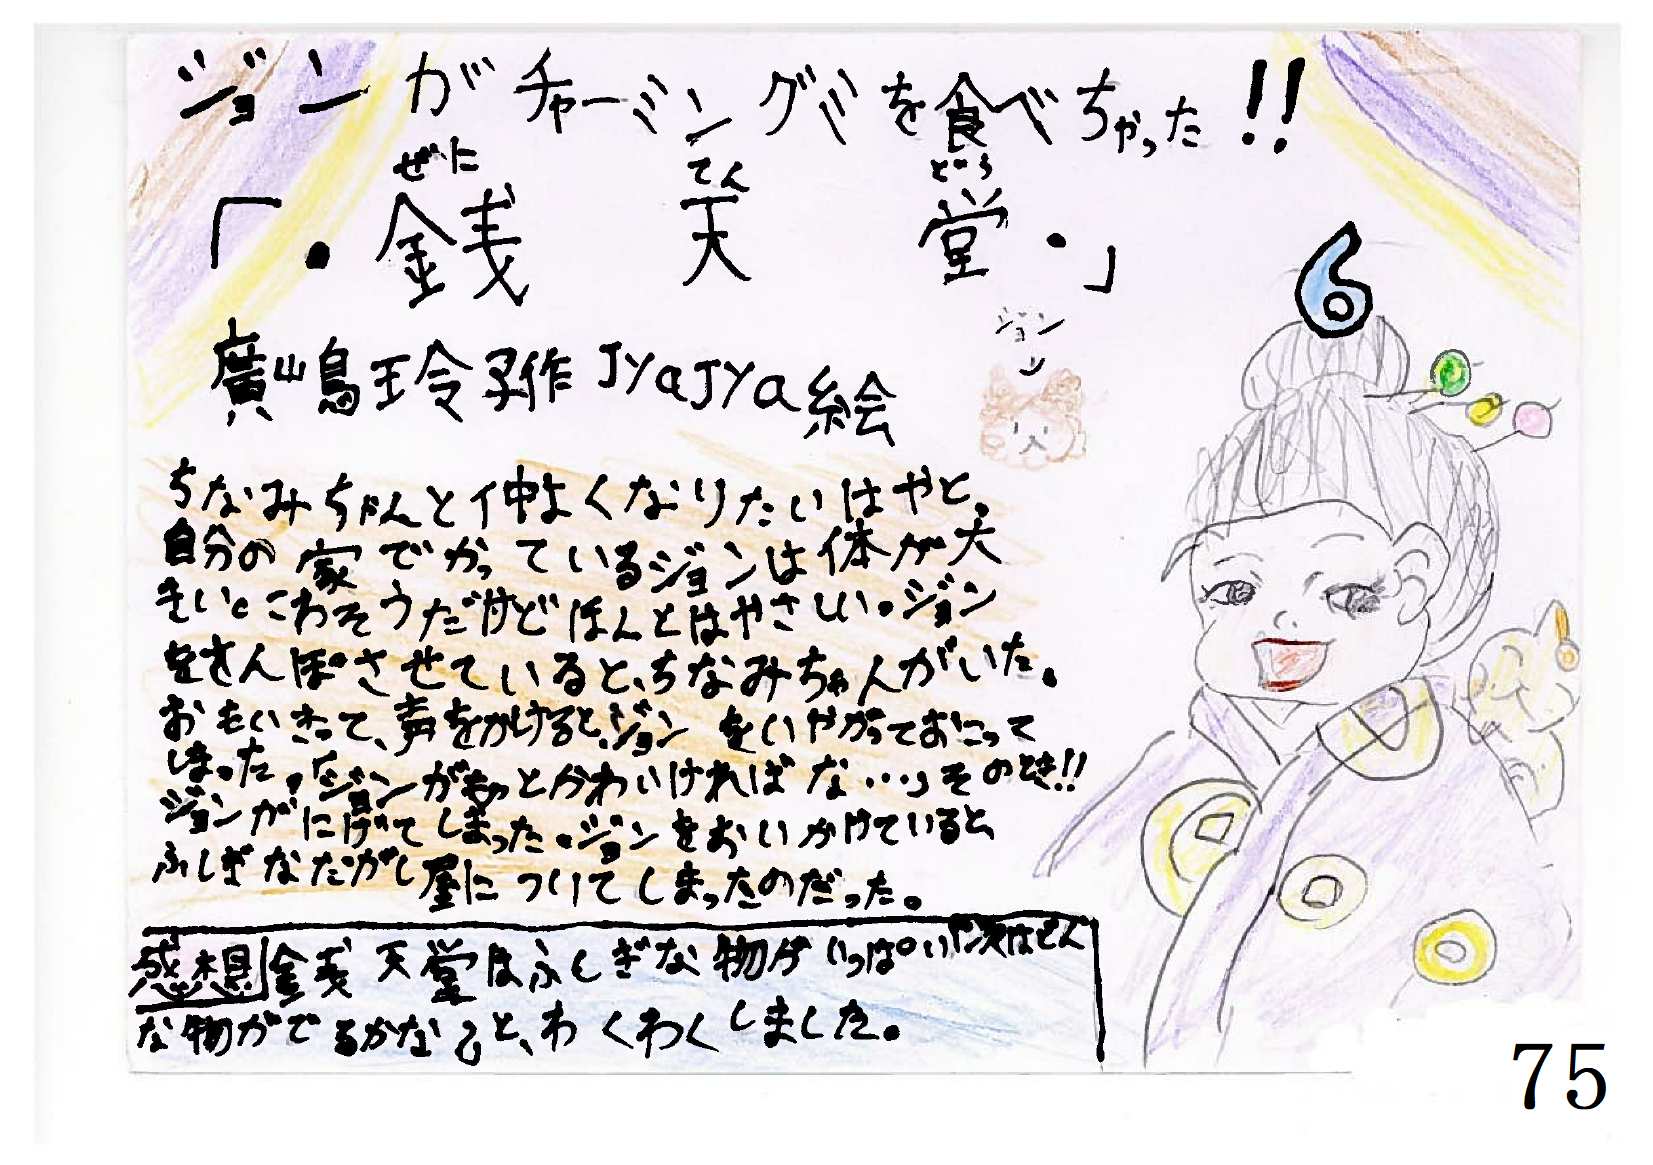 ジョンがチャーミングミを食べちゃった!!
ぜに てん どう
「・銭天堂・」
6
廣嶋玲子作 jyajya絵
ジョン
ちなみちゃんと仲よくなりたいはやと。
自分の家でかっているジョンは体が大
きい。こわそうだけどほんとはやさしい。ジョン
をさんぽさせていると、ちなみちゃんがいた。
おもいきって、声をかけると、ジョンをいやがっておこって
しまった。「ジョンがもっとかわいければな…」そのとき!!
ジョンがにげてしまった。ジョンをおいかけていると、
ふしぎなだがし屋についてしまったのだった。
感想 銭天堂はふしぎな物がいっぱいや次はどん
な物がでるかな?と、わくわくしました。
75